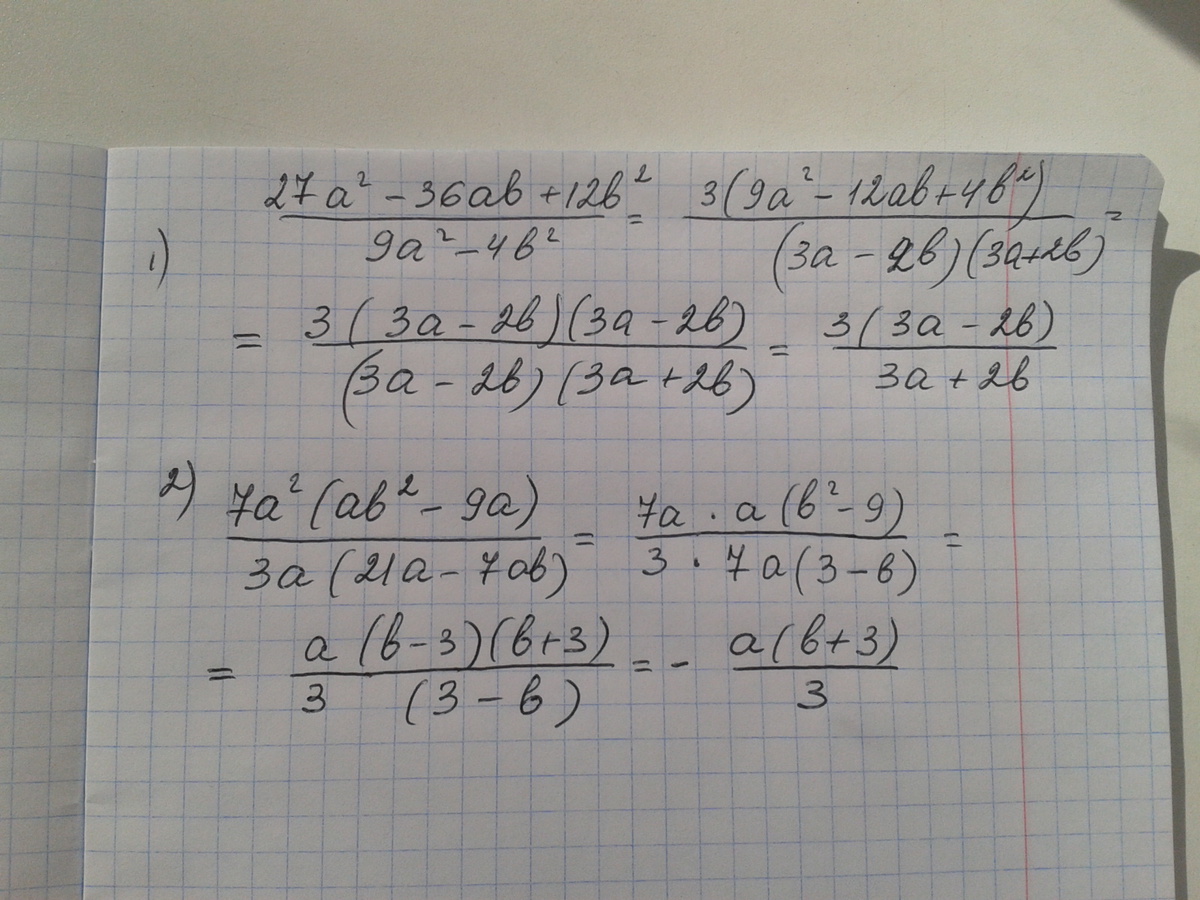 1) (27a² - 36ab + 12b²)/(9a² - 4b²) = 3(9a² - 12ab + 4b²)/((3a - 2b)(3a+2b)) =
= 3(3a - 2b)(3a - 2b)/((3a - 2b)(3a + 2b)) = 3(3a - 2b)/(3a + 2b)
2) 7a²(ab² - 9a)/(3a(21a - 7ab)) = 7a · a(b² - 9)/(3 · 7a(3 - b)) =
= a(b - 3)(b + 3)/(3(3 - b)) = - a(b + 3)/3